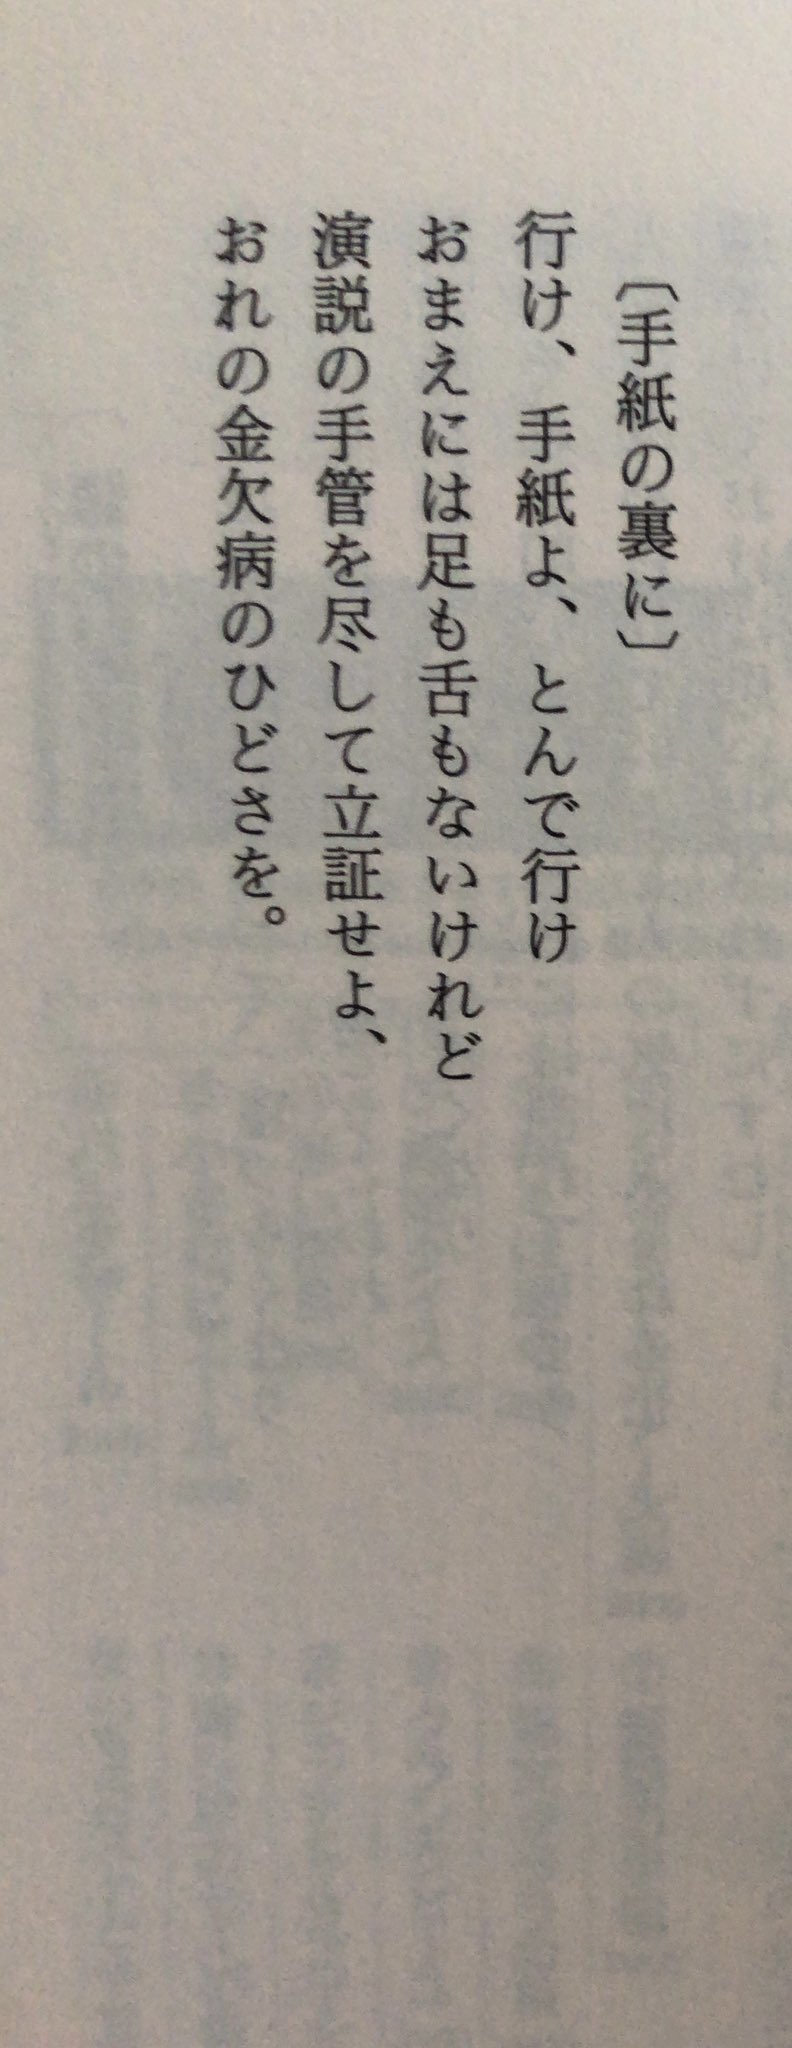 〔手紙の裏に〕
行け、手紙よ、とんで行け
おまえには足も舌もないけれど
演説の手管を尽して立証せよ、
おれの金欠病のひどさを。